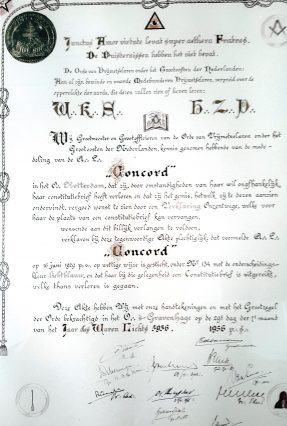 Junctus Amor virtute levat super aethera Fratres.
De Duisternissen hebben het niet bevat.
De Orde van Vrijmetselaren onder het Grootoosten der Nederlanden:
Aan al zijn beminde en waarde Medebroeders Vrijmetselaren, verspreid over de
oppervlakte der aarde, die dezen zullen zien of horen lezen:
W. K. S. H. Z. D.
Wij Grootmeester en Grootofficieren van de Orde van Vrijmetselaren onder het
Grootoosten der Nederlanden, kennis genomen hebbende van de mede-
deling van de A. L.
"Concord"
in het O. Rotterdam, dat zij, door omstandigheden van haar wil onafhankelijk,
haar constitutiebrief heeft verloren en dat zij het gemis, hetwelk zij te dezen aanzien
ondervindt, vergoed wenst te zien door een Verklaring Onzentwege, welke voor
haar de plaats van een constitutiebrief kan vervangen,
wensende aan dit billijk verlangen te voldoen,
verklaren bij deze tegenwoordige Akte plechtiglijk, dat voormelde A. L.
"Concord"
op 16 juni 1929 p.s. op wettige wijze is gesticht, onder No. 134 met de onderscheidings-
kleur lichtblauw, en dat haar bij die gelegenheid een Constitutiebrief is uitgereikt,
welke thans verloren is gegaan.
Deze Akte hebben Wij met onze handtekeningen en met het Grootzegel
der Orde bekrachtigd in het O. 's-Gravenhage op de 29d dag der 1e maand
van het Jaar des Waren Lichts 5956. 1956 p.s.